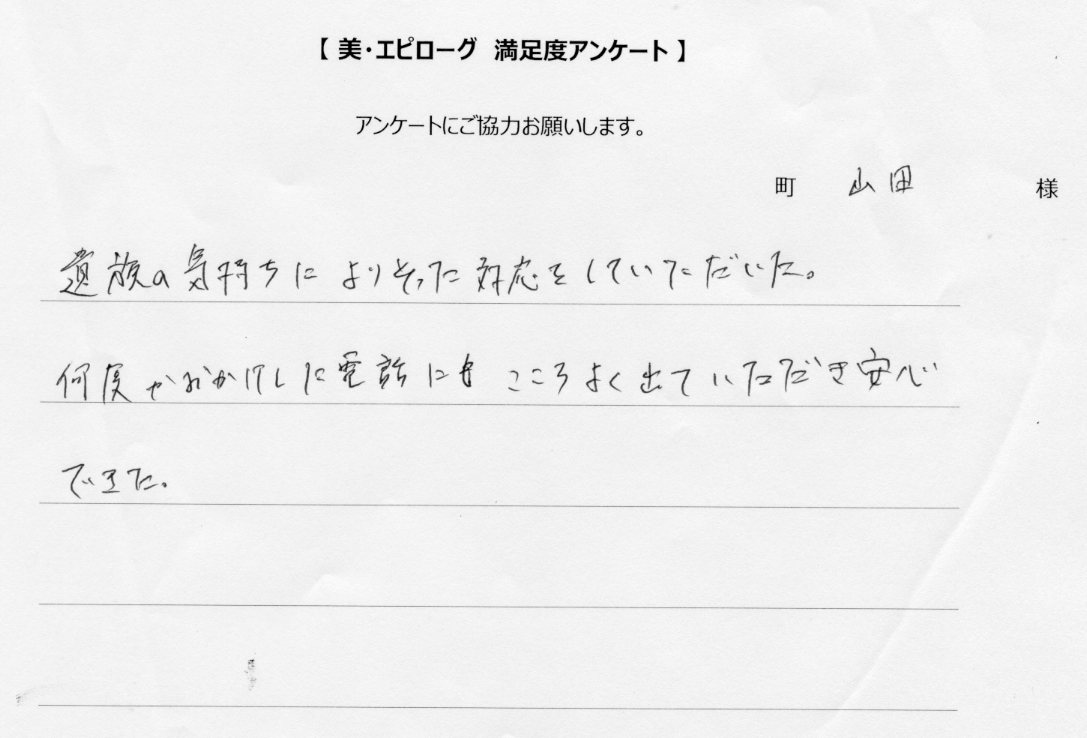 【 美・エピローグ 満足度アンケート 】
アンケートにご協力お願いします。
町 山田 様
遺族の気持ちによりそった対応をしていただいた。
何度かおかけした電話にも こころよく出ていただき安心
できた。